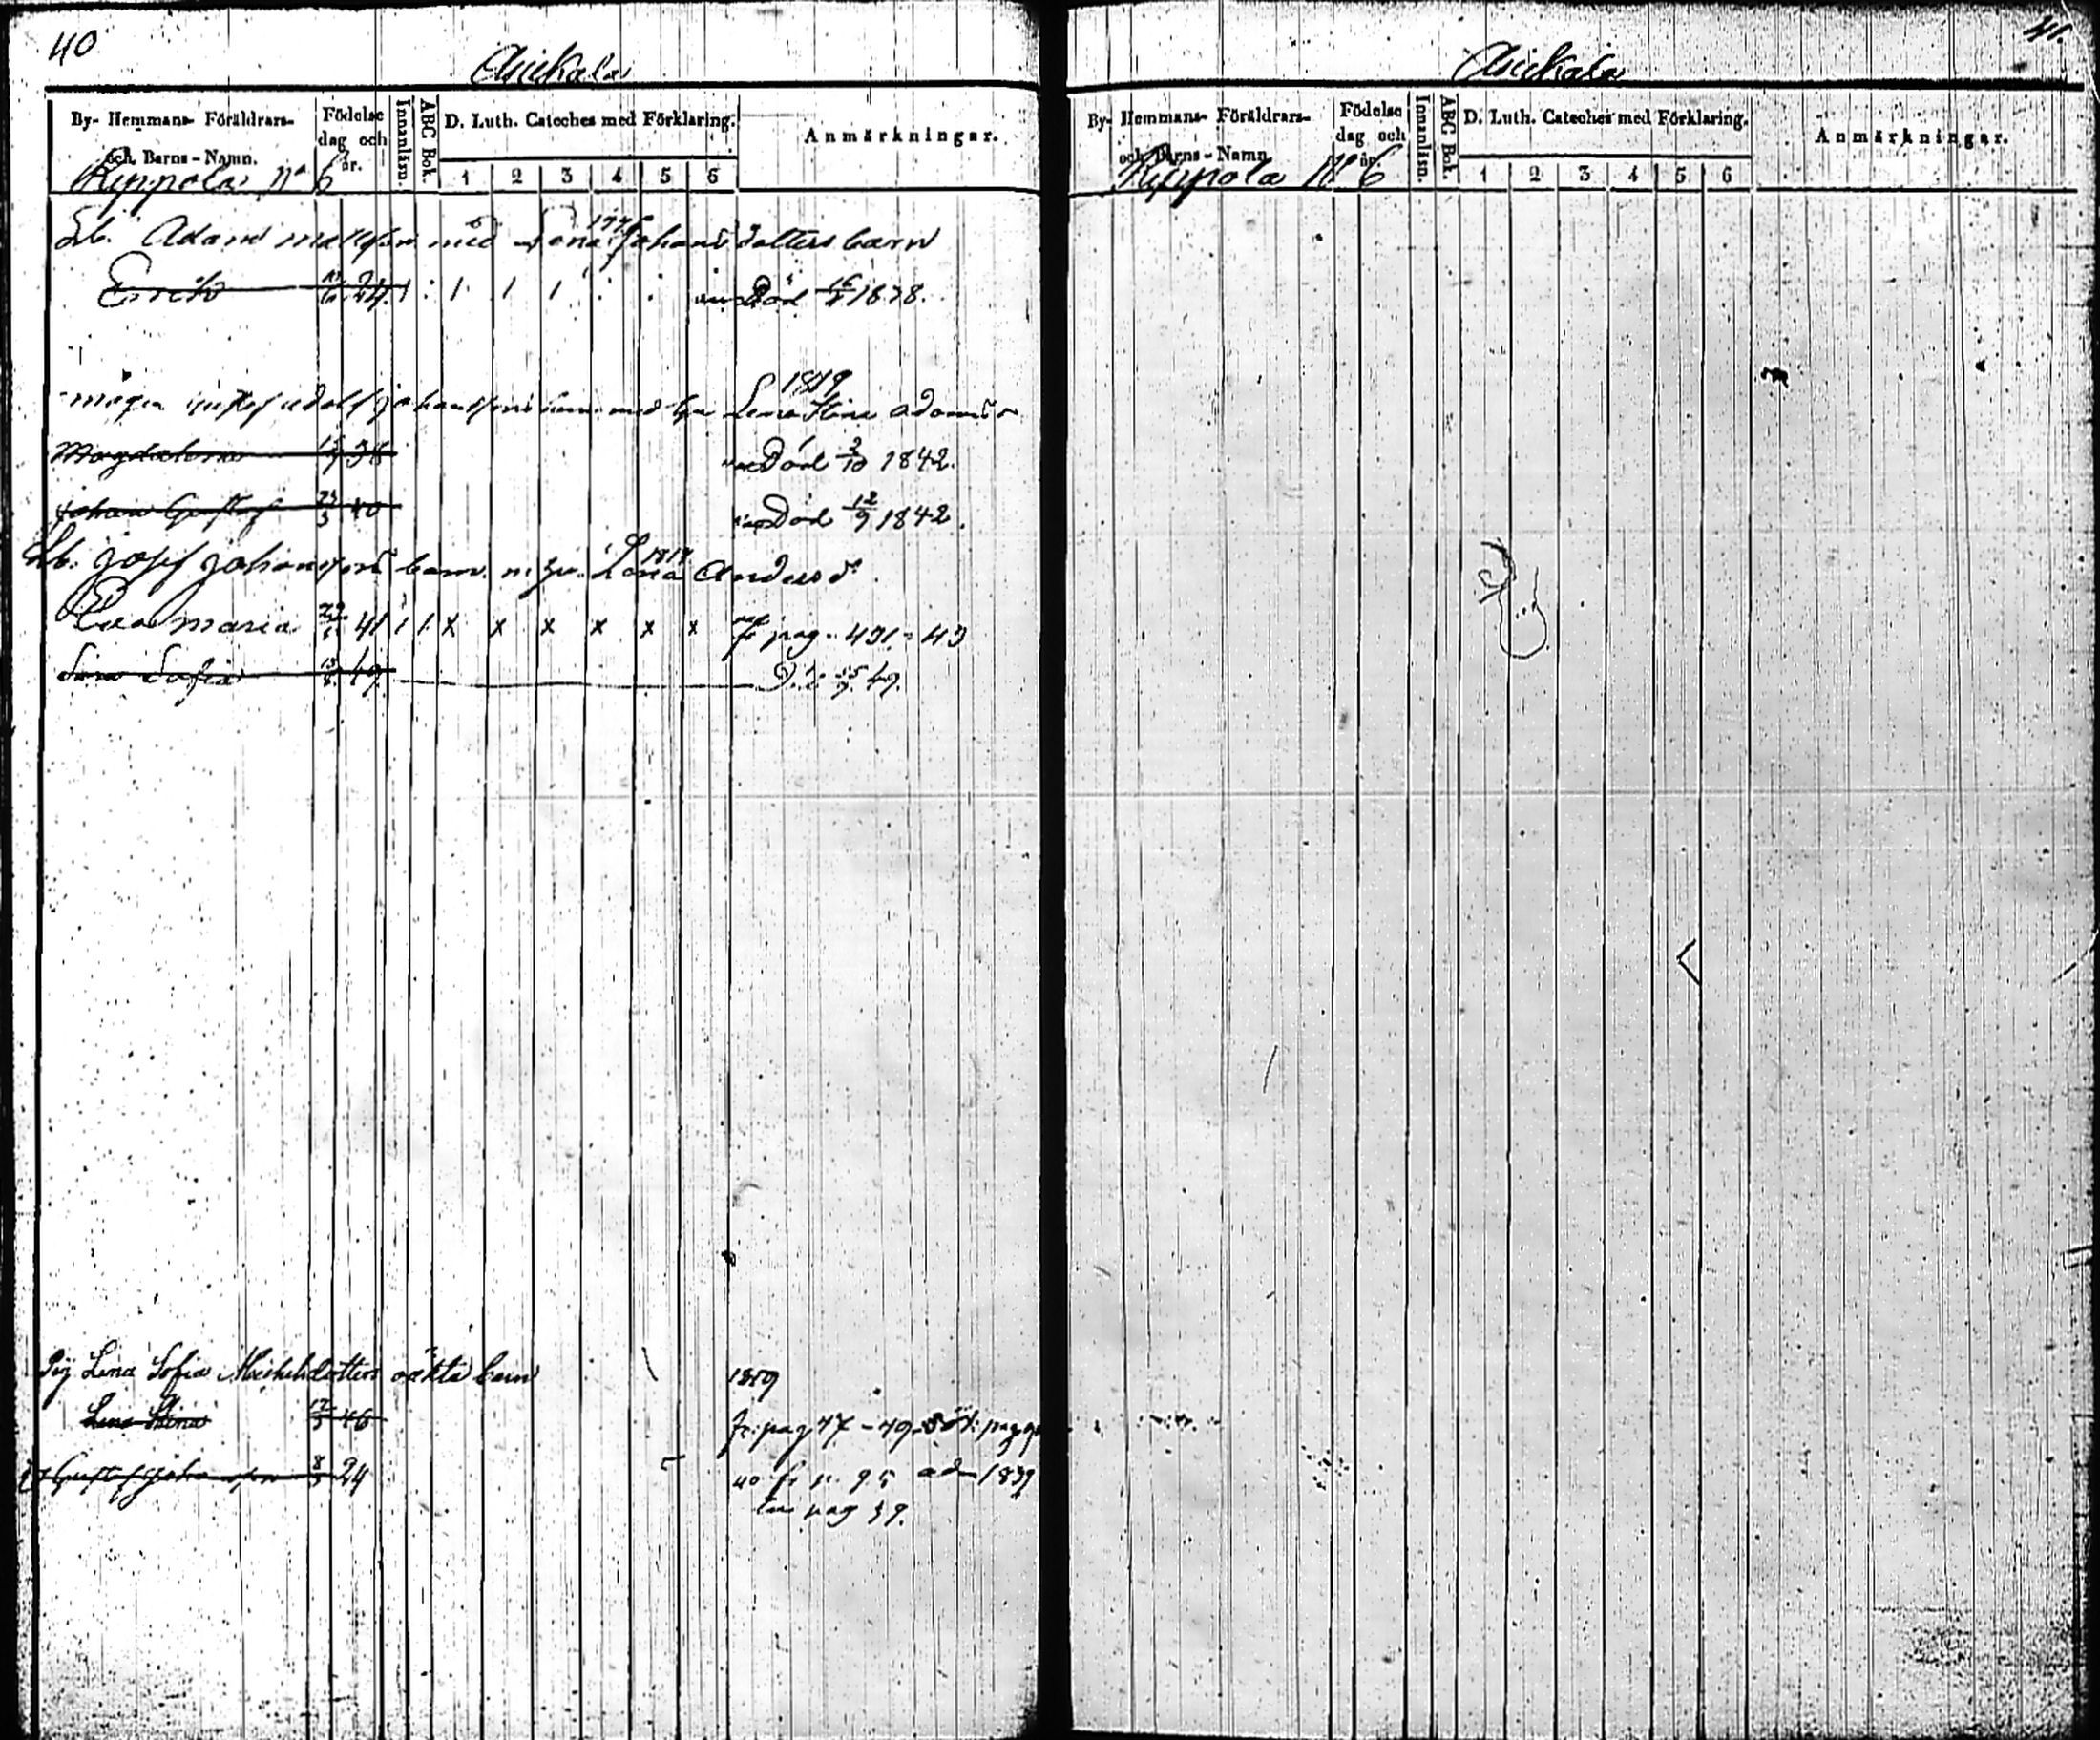 40
Anikala
By- Hemmans- Föräldrars-
och Barns-Namn.
Födelse
dag och
år.
Innanläsn.
ABC Bok.
D. Luth. Cateches med Förklaring.
1 2 3 4 5 6
Anmärkningar.
Ryppola No 6
Lb. Adam Mattsson med Lena Johansdotters barn
Erik 24 1 1 1 1 Död 1838.
1819
mågen Gustaf Adolf Johanssons barn med hu Lena Stina Adamsdr
Magdalena 38 Död 2/10 1842.
Johan Gustaf 23/3 40 Död 12/9 1842.
Lb. Josef Johanssons barn m. hu. Lena Andersdr
Eva Maria 41 1 1 x x x x x x fr pag. 431 - 43
Lena Sofia 49 49.
Pig Lena Sofia Michelsdotters oäkta barn
Lena Stina 12/3 46 fr. pag 47 - 49
Gustaf Johansson 8/3 24 40 fr p. 95 1839
pag 39.
41.
Anikala
By- Hemmans- Föräldrars-
och Barns-Namn.
Födelse
dag och
år.
Innanläsn.
ABC Bok.
D. Luth. Cateches med Förklaring.
1 2 3 4 5 6
Anmärkningar.
Ryppola No 6